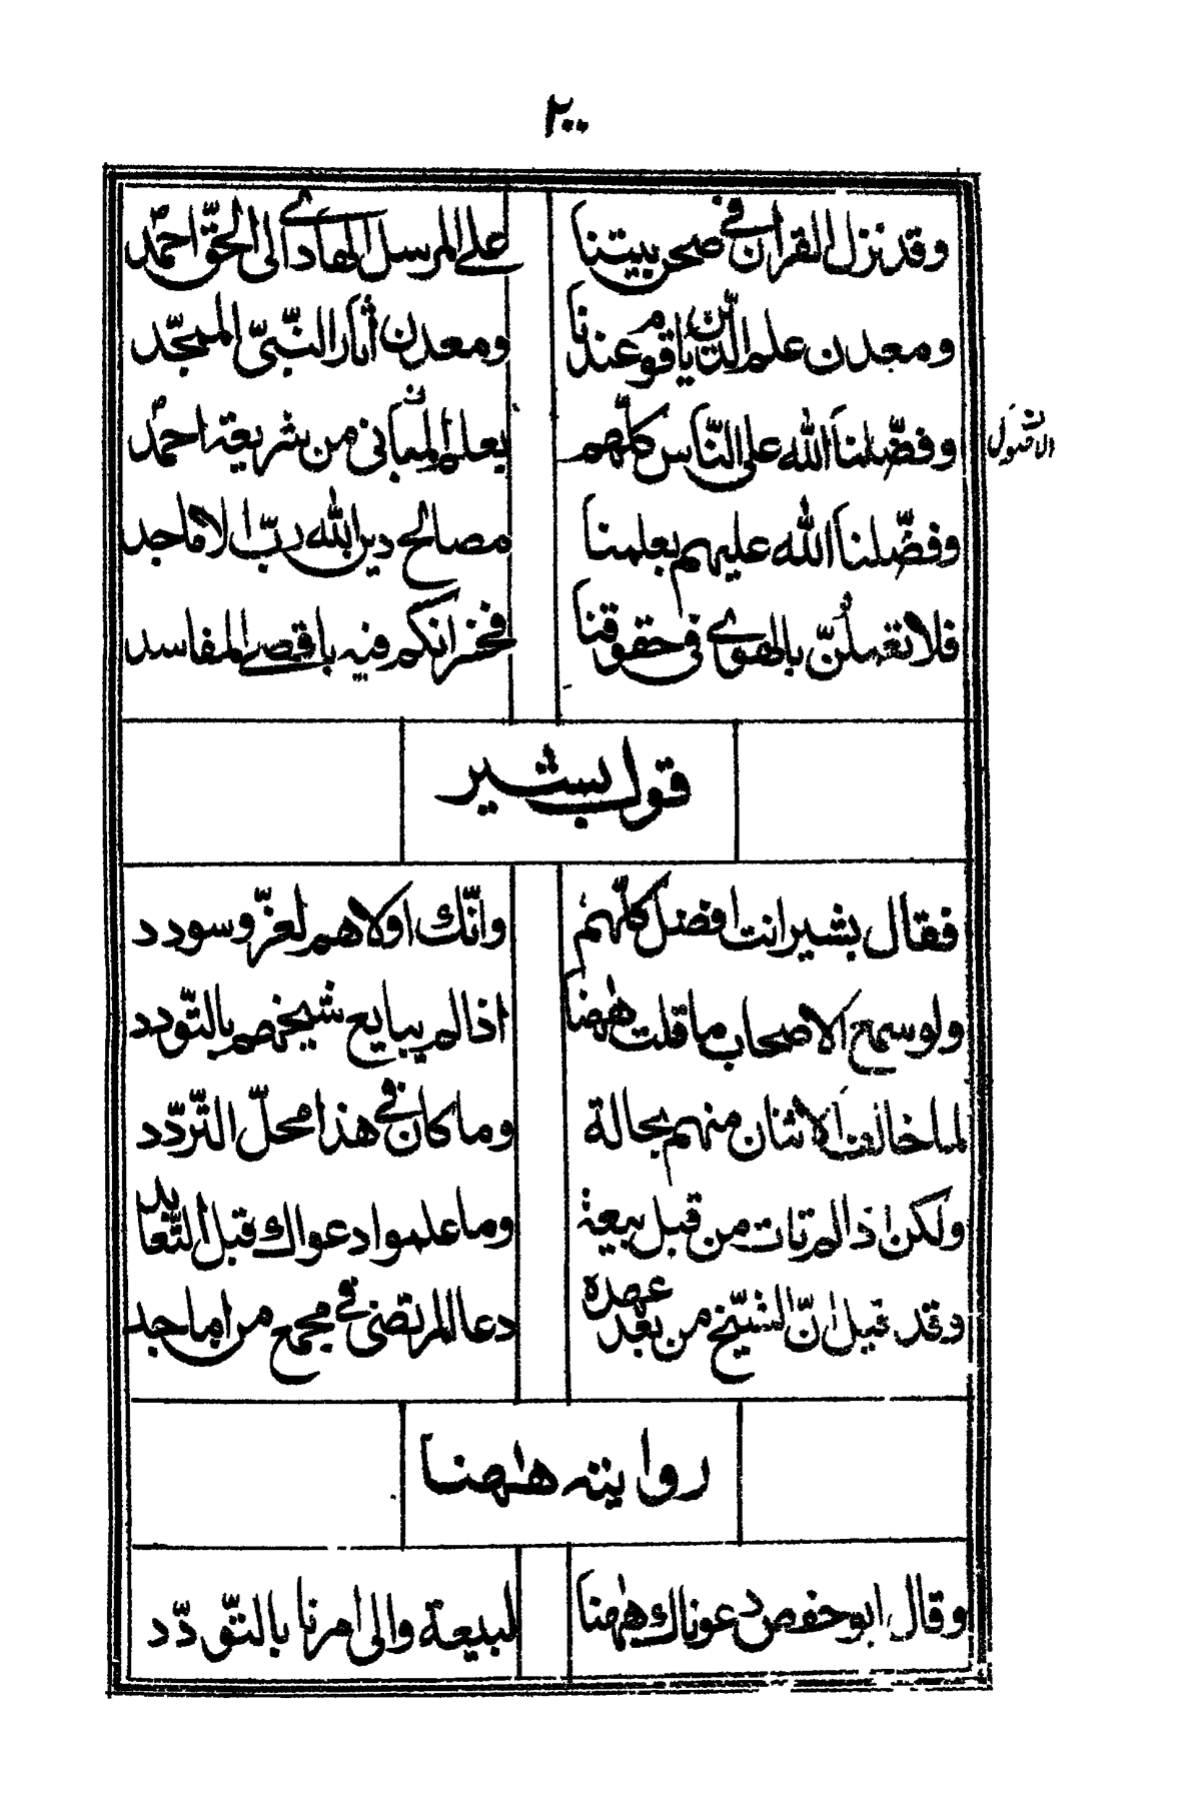 ٢٠٠
وقد نزل القران في صحن بيتنا على المرسل الهادي الى الحق احمد
ومعدن علم الدّين يا قوم عندنا ومعدن اٰثار النّبيّ الممجّد
وفضّلنا الله على النّاس كلّهم بعلم المبانى من شريعة احمد
وفضّلنا الله عليهم بعلمنا مصالح دين الله ربّ الاماجد
فلا تعملنّ بالهوى في حقوقنا فخسرانكم فيه باقصى المفاسد
قول بشير
فقال بشير انت افضل كلّهم وانّك اولاهم لعزّ وسودد
ولو سمع الاصحاب ما قلت هٰهنا اذا لم يبايع شيخهم بالتّودد
لما خالف الاثنان منهم بحالة وما كان في هذا محلّ التّردّد
ولكن اذا لم تات من قبل بيعة وما علموا دعواك قبل التّعابد
وقد قيل انّ الشّيخ من بعد عهده دعا المرتضى في مجمع من اماجد
رواية هاهنا
وقال ابو حفص دعوناك هٰهنا لبيعة والى امرنا بالتّودّد